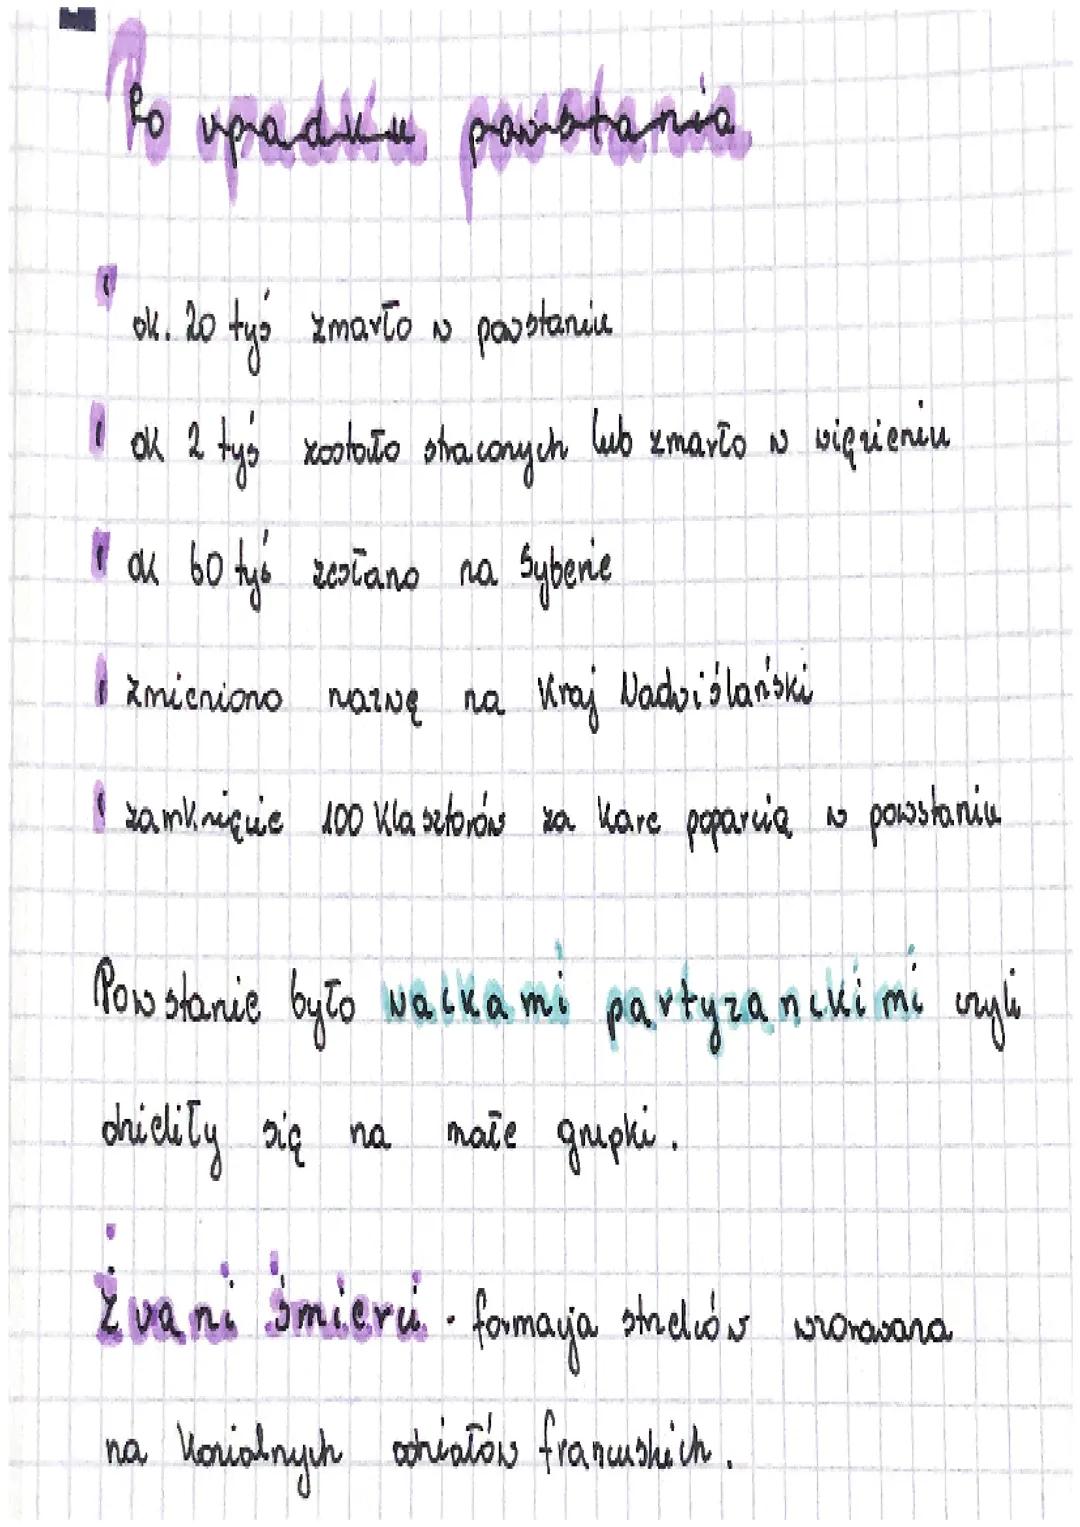 Po upadku powstania
ok. 20 tyś zmarło w powstaniu
ok 2 tyś zostało straconych lub zmarło w więzieniu
ok 60 tyś zesłano na Syberie
zmieniono nazwę na Kraj Nadwiślański
zamknięcie 100 klasztorów za kare poparcia w powstaniu
Powstanie było walkami partyzanckimi czyli
dzieliły się na małe grupki.
Żuani śmierci - formacja strzelców wzorowana
na kozialnych oddziałów francuskich.